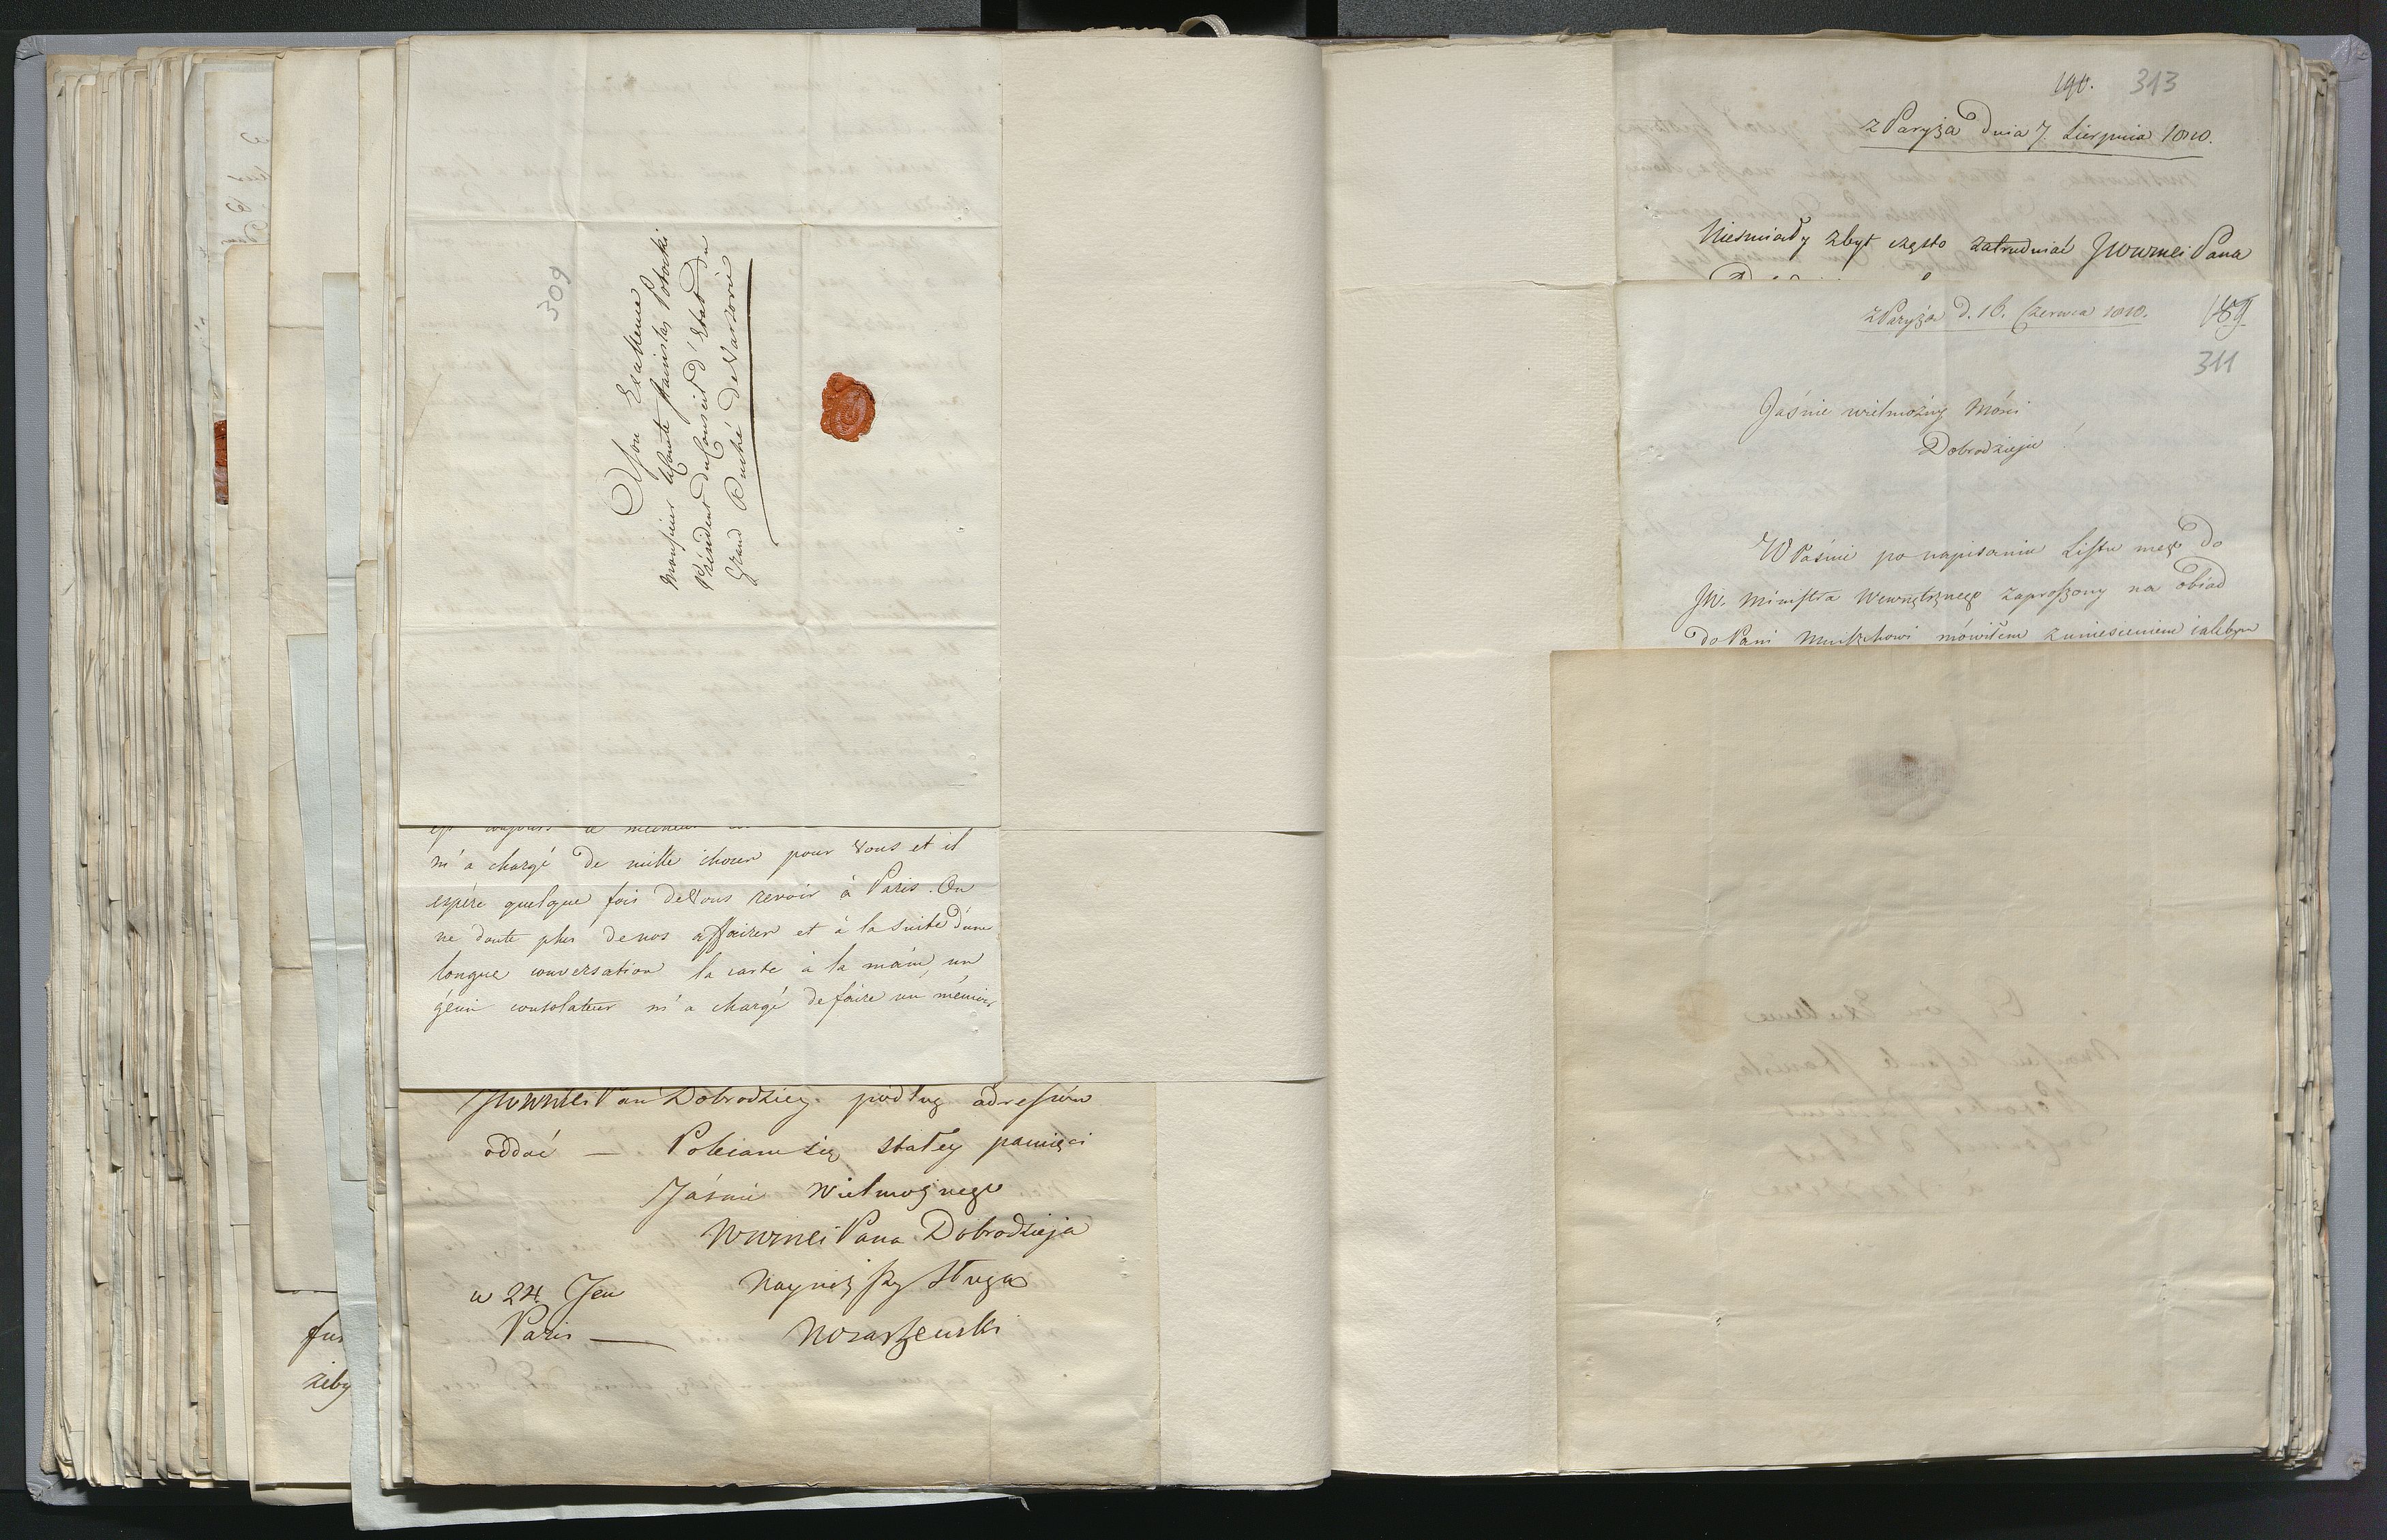 309
A Son Excellence
Monsieur le Comte Stanislas Potocki
Président du Conseil d'Etat du
Grand Duché de Varsovie
m'a chargé de mille choses pour vous et il
espère quelque fois de vous revoir à Paris. On
ne doute plus de nos affaires et à la suite d'une
longue conversation la carte à la main, un
génie consolateur m'a chargé de faire un mémoire
JWWMci Pan Dobrodziey podług adressów
oddać — Polecam się stałey pamięci
Jaśnie Wielmożnego
WWMci Pana Dobrodzieja
Nayniższy Sługa
u 24. Jen
Paris —
fus
żeby
190. 313
z Paryża Dnia 7. Sierpnia 1810.
Nieśmiałby zbyt często zatrudniać JWWMci Pana
z Paryża d. 16. Czerwca 1810. 189
311
Jaśnie wielmożny Mości
Dobrodzieju!
Właśnie po napisaniu Listu mego do
JW. Ministra Wewnętrznego zaproszony na obiad
do Pani mówiłem z uniesieniem